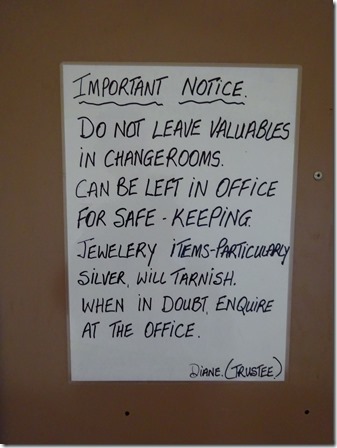 IMPORTANT NOTICE.
DO NOT LEAVE VALUABLES
IN CHANGEROOMS.
CAN BE LEFT IN OFFICE
FOR SAFE-KEEPING.
JEWELERY ITEMS-PARTICULARLY
SILVER, WILL TARNISH.
WHEN IN DOUBT, ENQUIRE
AT THE OFFICE.
DIANE. (TRUSTEE.)